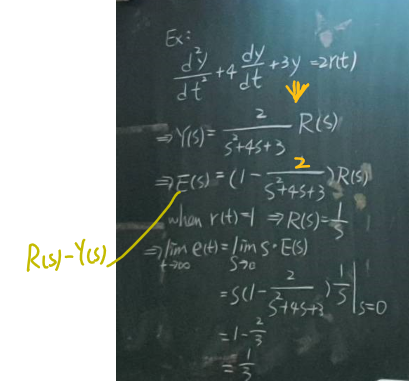 Ex:
d²y/dt² + 4 dy/dt + 3y = 2r(t)
⇒ Y(s) = 2/(s²+4s+3) R(s)
⇒ E(s) = (1 - 2/(s²+4s+3)) R(s)
R(s)-Y(s)
when r(t)=1 ⇒ R(s) = 1/s
⇒ lim t→∞ e(t) = lim s→0 s·E(s)
= s(1 - 2/(s²+4s+3)) 1/s |s=0
= 1 - 2/3
= 1/3